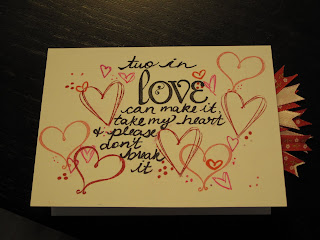 two in
LOVE
can make it.
take my heart
& please
don't
break
it